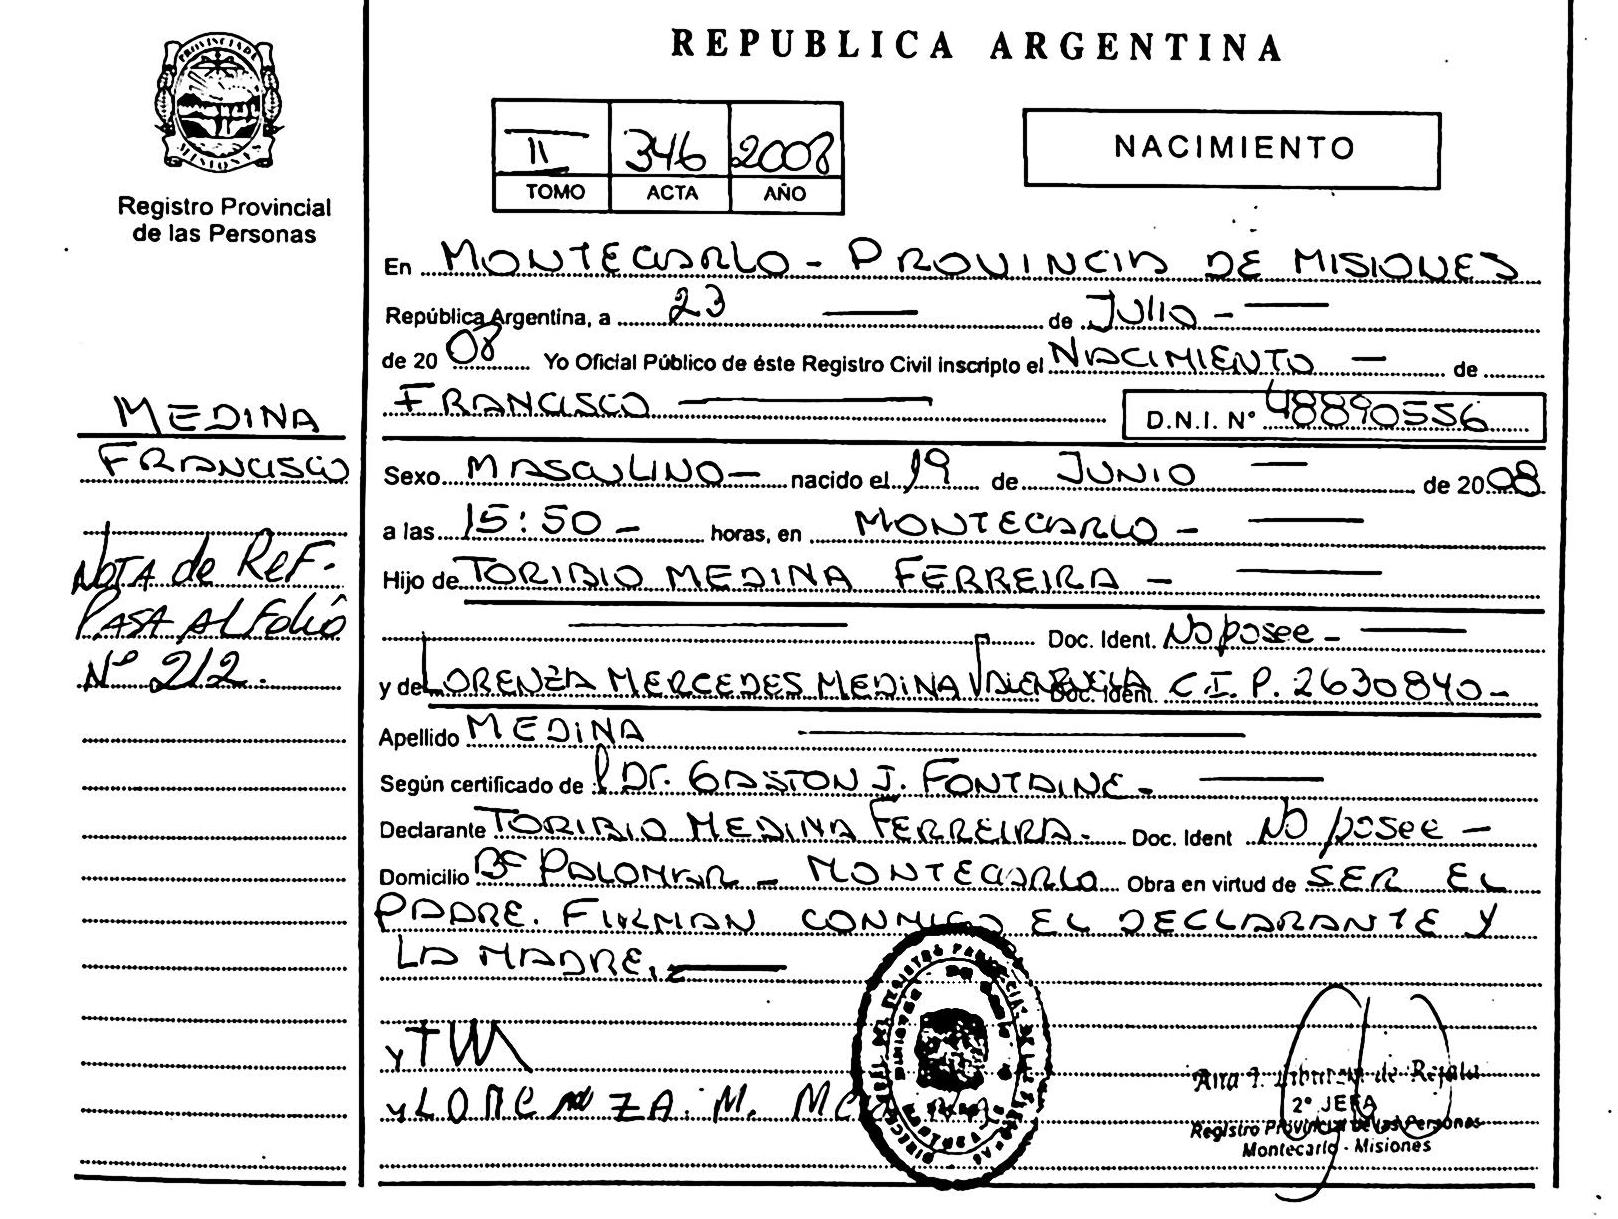 PROVINCIA DE
MISIONES
Registro Provincial
de las Personas
MEDINA
FRANCISCO
Nota de Ref.
Pasa al Folio
Nº 212.
REPUBLICA ARGENTINA
II 346 2008
TOMO ACTA AÑO
NACIMIENTO
En MONTECARLO - PROVINCIA DE MISIONES
República Argentina, a 23 de JULIO -
de 20 08 Yo Oficial Público de éste Registro Civil inscripto el NACIMIENTO - de
FRANCISCO D.N.I. Nº 48890556
Sexo MASCULINO - nacido el 19 de JUNIO de 20 08
a las 15:50 - horas, en MONTECARLO -
Hijo de TORIBIO MEDINA FERREIRA -
Doc. Ident. No posee -
y de LORENZA MERCEDES MEDINA Doc. Ident. C.I.P. 2630840-
Apellido MEDINA
Según certificado de Dr. GASTON J. FONTAINE -
Declarante TORIBIO MEDINA FERREIRA. Doc. Ident No posee -
Domicilio Bº PALOMAR - MONTECARLO Obra en virtud de SER EL
PADRE. FIRMAN CONMIGO EL DECLARANTE Y
LA MADRE.
LORENZA. M. ME
2º JEFA
Registro Provincial de las Personas
Montecarlo - Misiones